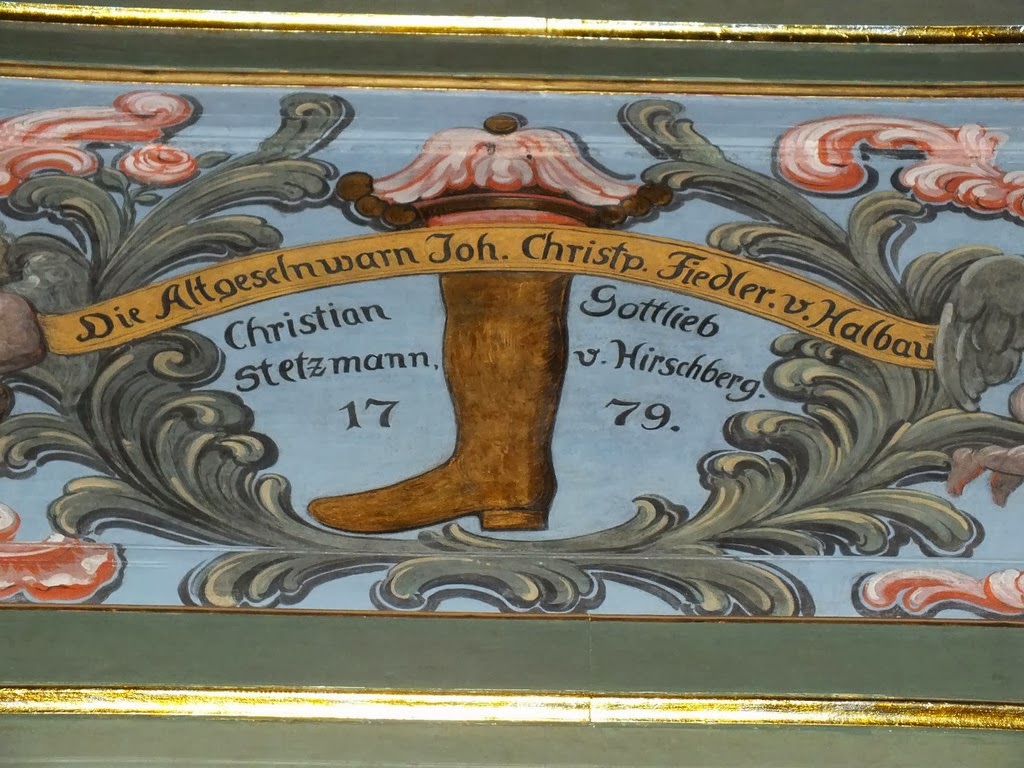 Die Altgeselnwarn Joh. Christp. Fiedler. v. Halbau
Christian Gottlieb
stetzmann, v. Hirschberg.
17 79.